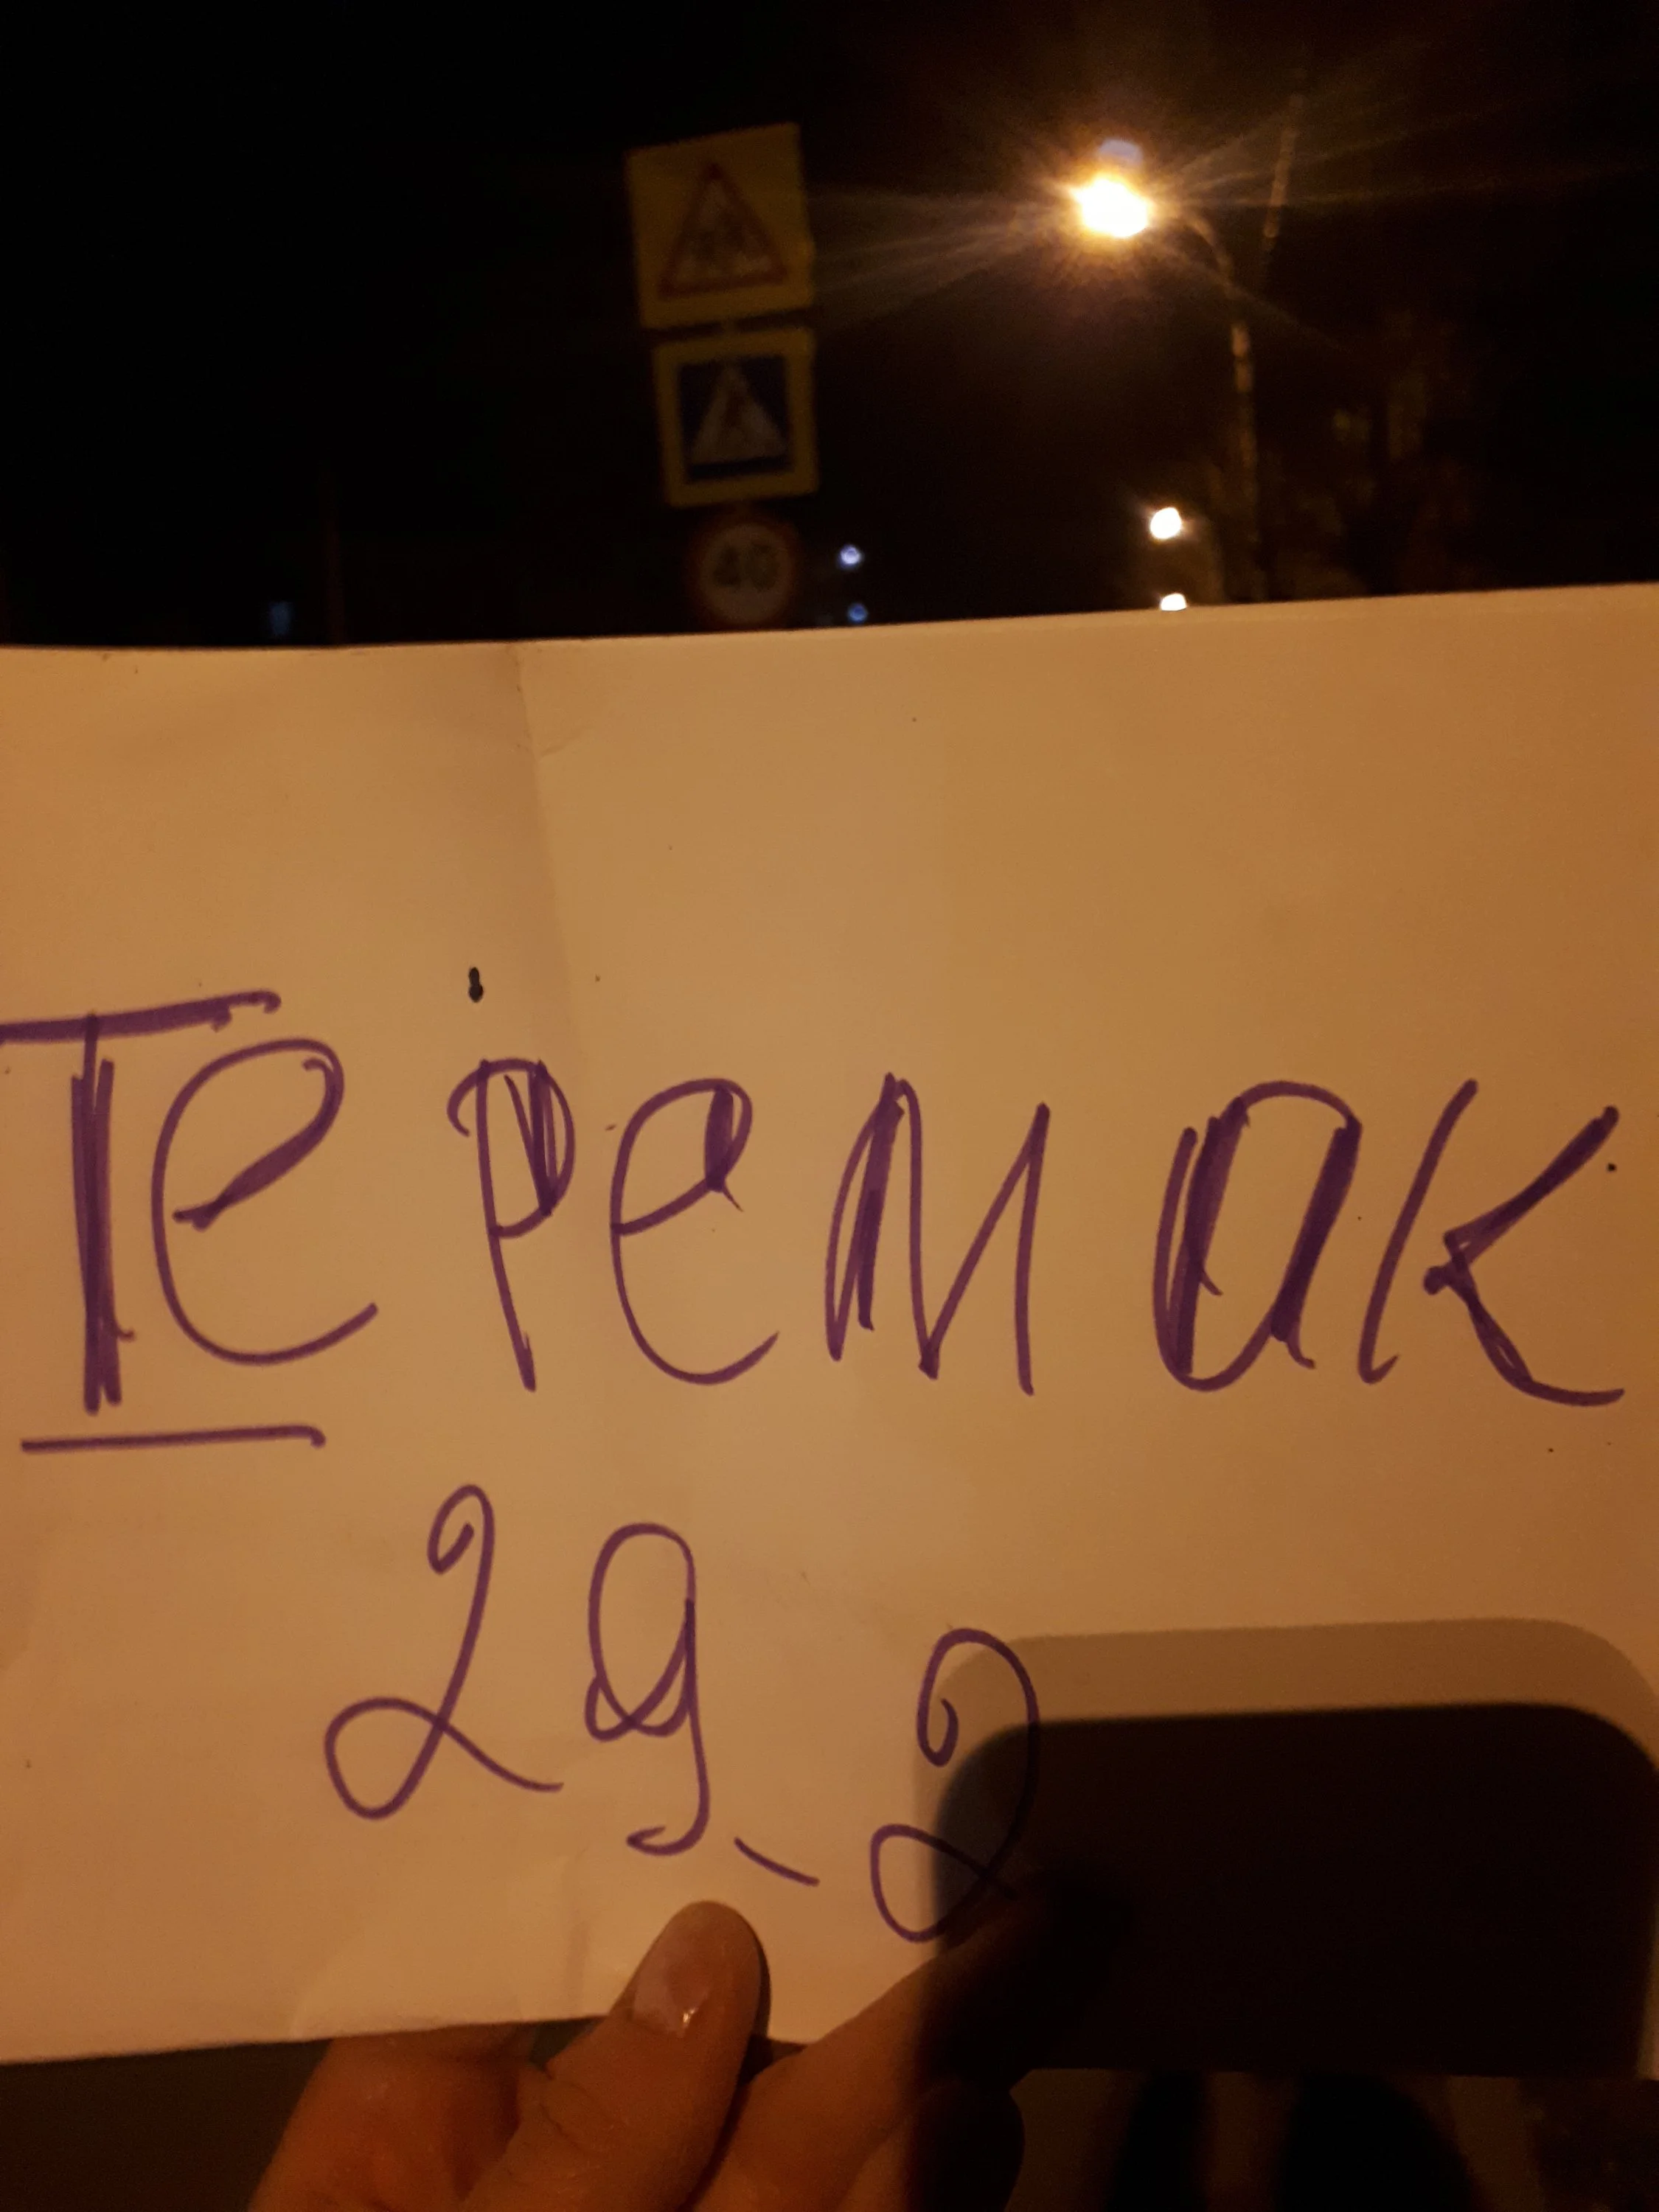 40
Теремак
29-2